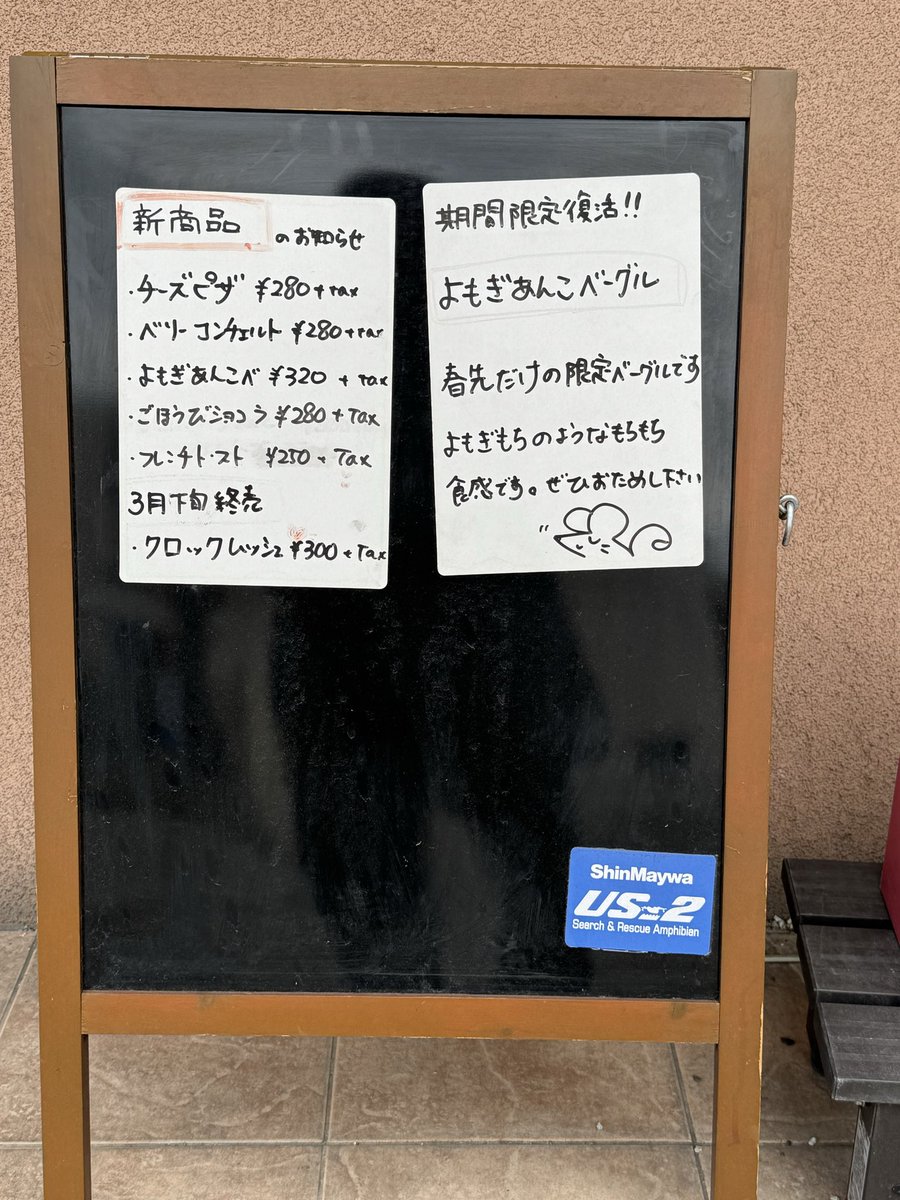 新商品のお知らせ
・チーズピザ ¥280+tax
・ベリーコンチェルト ¥280+tax
・よもぎあんこベ ¥320 + tax
・ごほうびショコラ ¥280+tax
・フレンチトースト ¥250+ Tax
3月下旬終売
・クロックムッシュ ¥300+Tax
期間限定復活!!
よもぎあんこベーグル
春先だけの限定ベーグルです
よもぎもちのようなもちもち
食感です。ぜひおためし下さい
ShinMaywa
US-2
Search & Rescue Amphibian